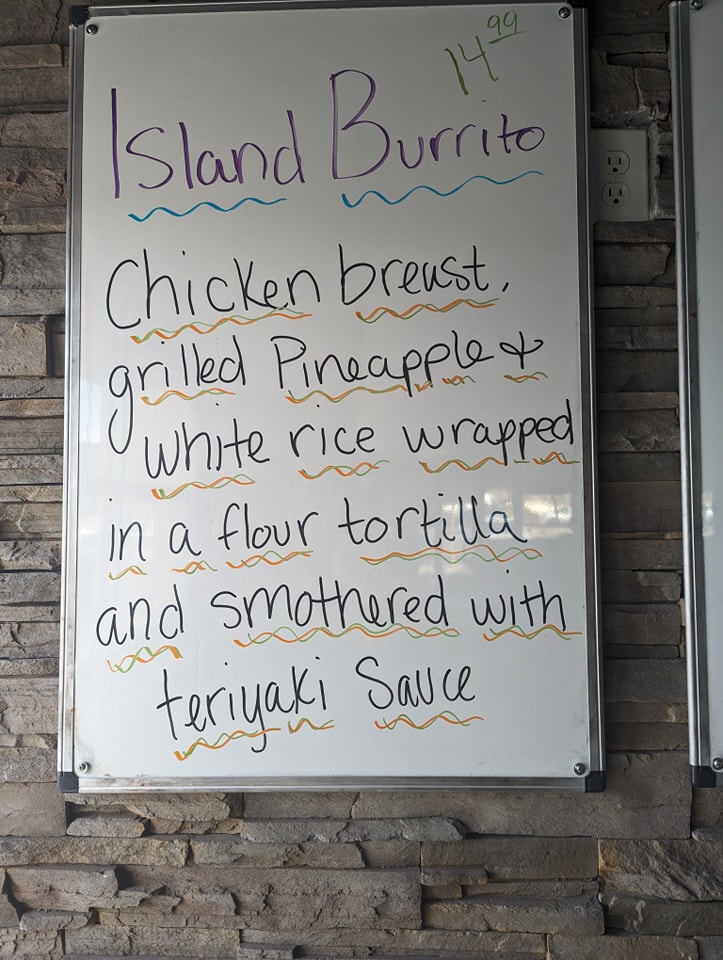 14 99
Island Burrito
Chicken breast,
grilled Pineapple &
white rice wrapped
in a flour tortilla
and smothered with
teriyaki Sauce